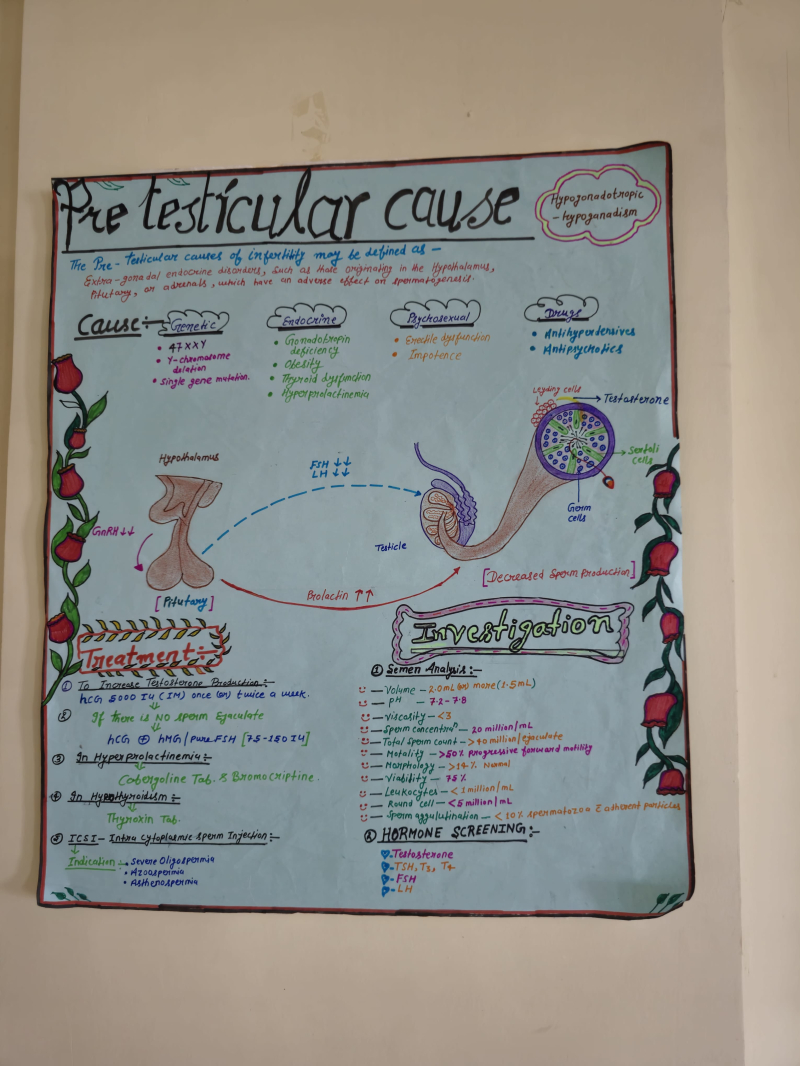 Pre testicular cause
Hypogonadotropic
- hypoganadism
The Pre-Testicular causes of infertility may be defined as -
Extra-gonadal endocrine disorders, such as those originating in the Hypothalamus,
Pitutary, or adrenals, which have an adverse effect on spermatogenesis.
Cause:-
Genetic
• 47XXY
• Y-chromosome
delation
• Single gene mutation.
Endocrine
• Gonodotropin
deficiency
• Obesity
• Thyroid dysfunction
• Hyperprolactinemia
Psychosexual
• Erectile dysfunction
• Impotence
Drugs
• Antihypertensives
• Antipsychotics
Leyding cells
Testosterone
Sertoli
cells
Germ
cells
Hypothalamus
FSH ↓↓
LH ↓↓
GnRH ↓↓
Testicle
[Pitutary]
Prolactin ↑↑
[Decreased Sperm Production]
Treatment:-
① To Increase Testosterone Production:-
hCG 5000 IU (IM) once (or) twice a week.
② If there is NO sperm Ejaculate
hCG ⊕ hMG/Pure FSH [75-150 IU]
③ In Hyperprolactinemia:-
Cabergoline Tab. & Bromocriptine.
④ In Hypothyroidism:-
Thyroxin Tab.
⑤ ICSI- Intra cytoplasmic sperm Injection:-
Indication - • Severe Oligospermia
• Azoospermia
• Asthenospermia
Investigation
① Semen Analysis:-
— Volume - 2.0mL (or) more (1.5mL)
— pH - 7.2-7.8
— Viscosity - <3
— Sperm concentraⁿ - 20 million/mL
— Total sperm count - >40 million/ejaculate
— Motality - >50% progressive forward motility
— Morphology - >14% Normal
— Viability - 75%
— Leukocytes - < 1 million/mL
— Round cell - <5 million/mL
— Sperm agglutination - < 10% spermatozoa c̄ adherent particles
② HORMONE SCREENING:-
- Testosterone
- TSH, T3, T4
- FSH
- LH